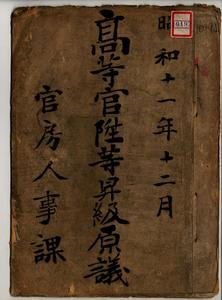 昭和十一年十二月
高等官陞等昇級原議
官房人事課